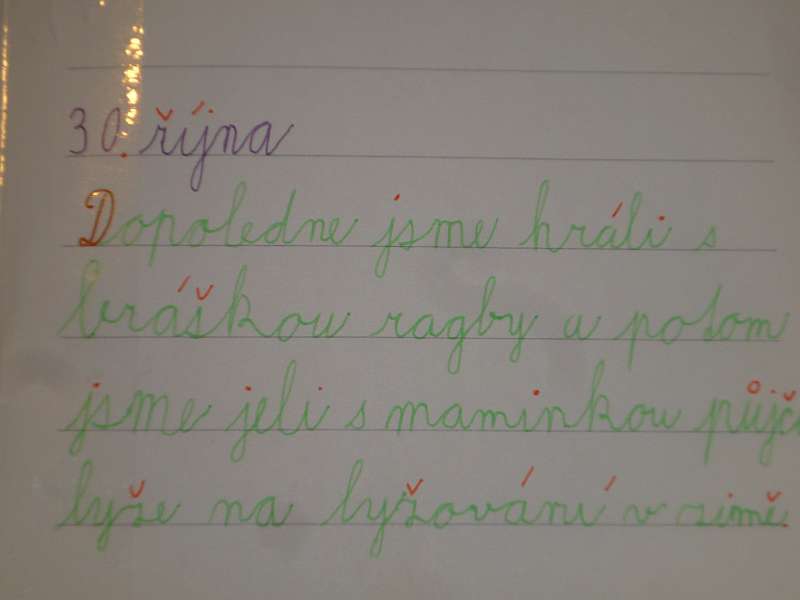 30. října
Dopoledne jsme hráli s
bráškou ragby a potom
jsme jeli s maminkou půjč
lyže na lyžování v zimě.